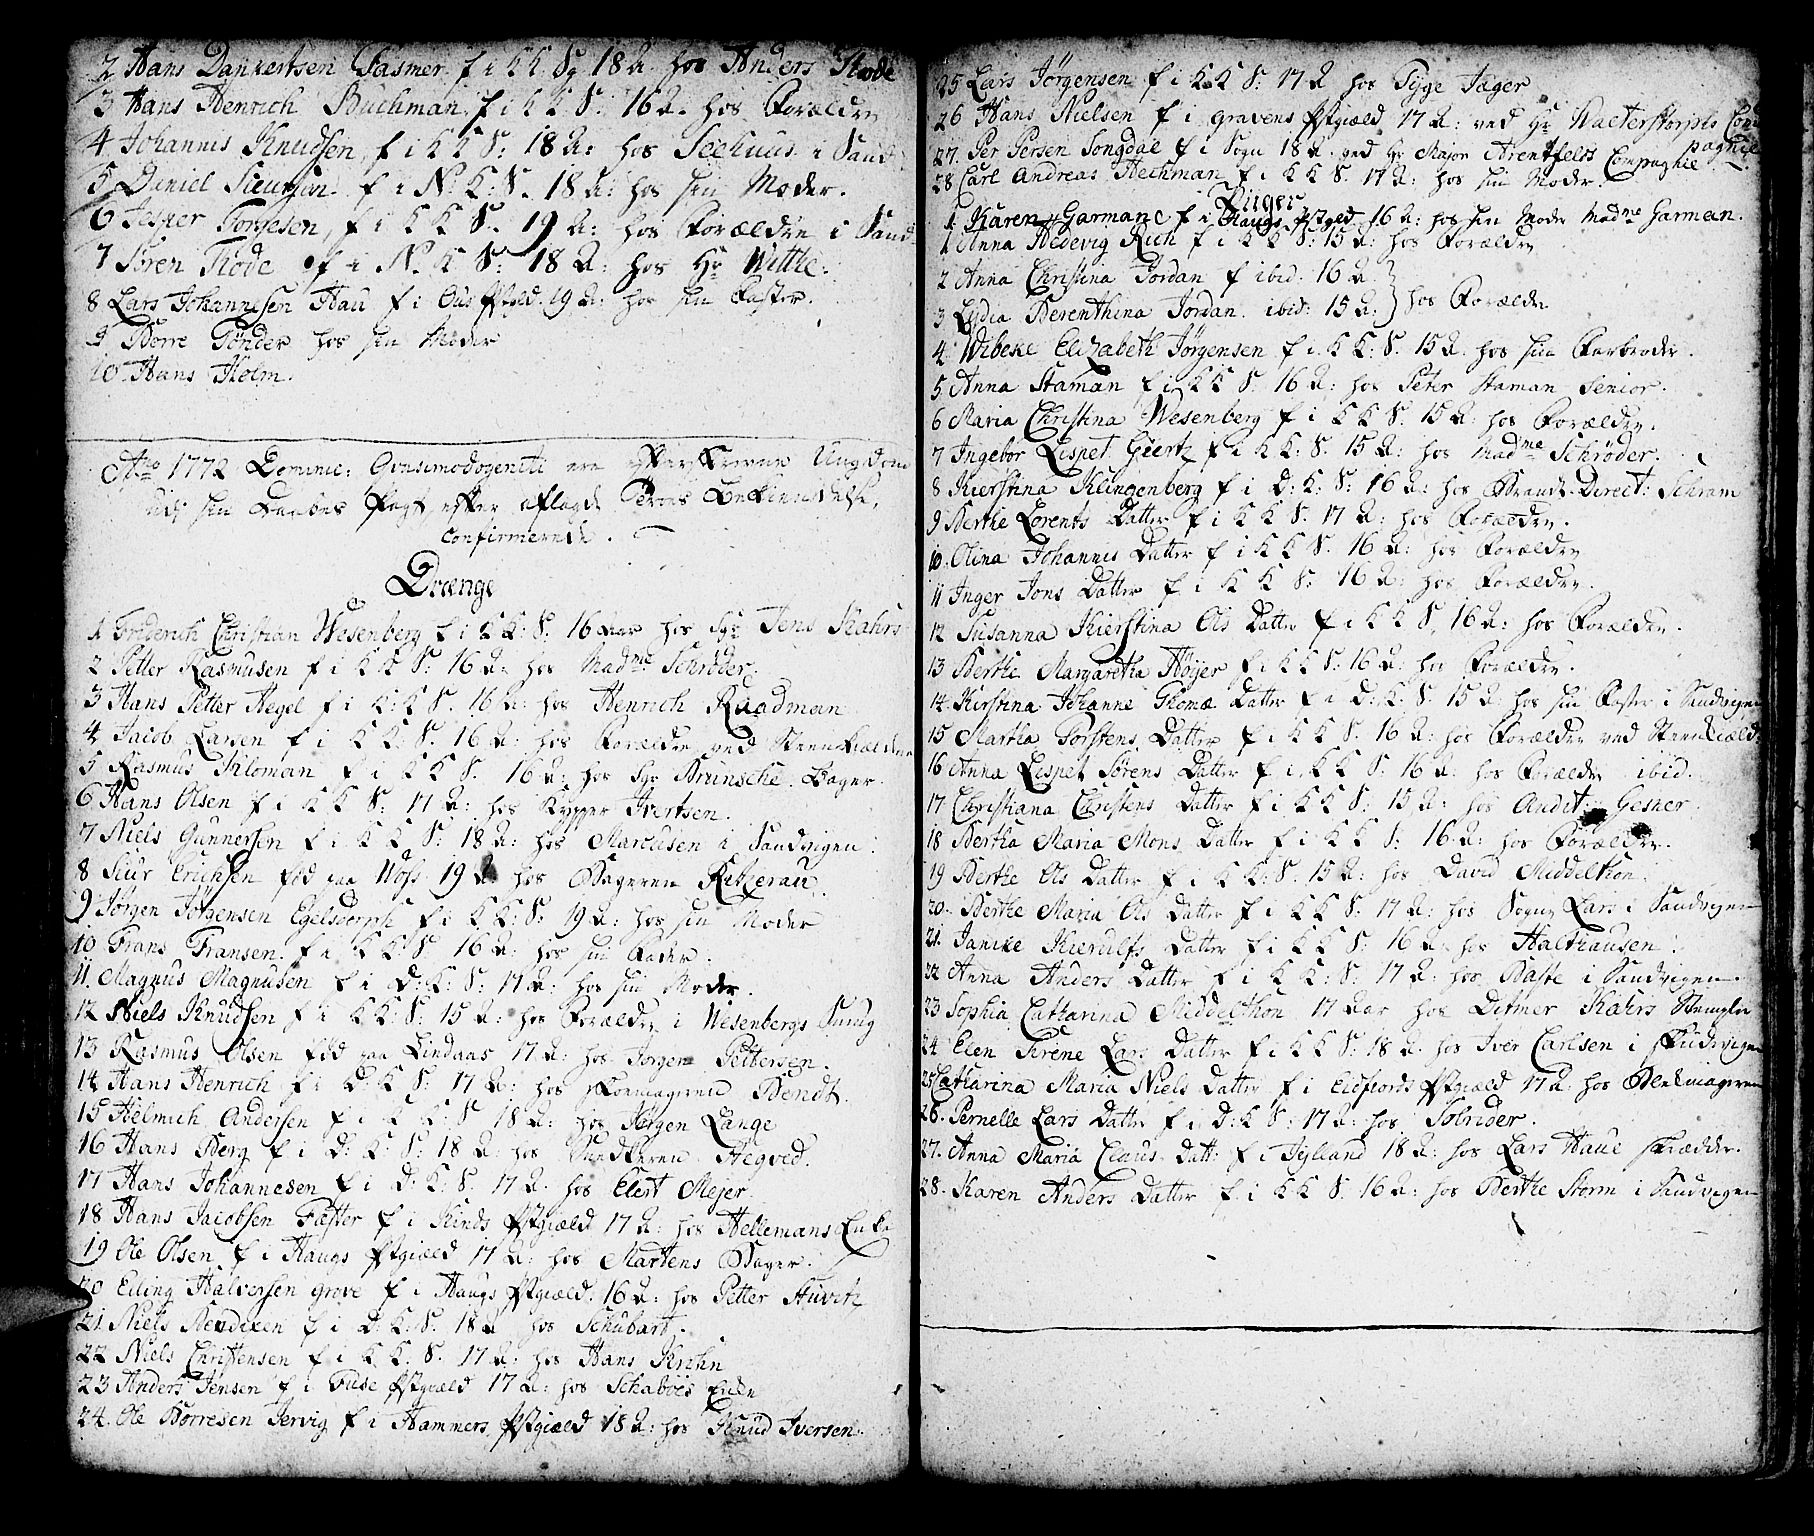 2 Hans Dankertsen Fasmer f i K K Sg 18 A. hos Anders Flode
3 Hans Henrich Buchman f i K K S: 16 A. hos Forældre
4 Johannis Knudsen, f i K K S: 18 A: hos Seehuus i Sand
5 Daniel f i N: K: S. 18 A: hos sin Moder.
6 Jesper Tonjesen, f i K K S. 19 A: hos Forældre i Sand
7 Søren Flode f i N. K S: 18 A: hos Hr Wittke.
8 Lars Johannesen Hau f i Ous Pstgield. 19 A: hos sin Faster.
9 Børre Tønder hos sin Moder
10. Hans Holm.
Ao 1772 Dominic: Qvasimodogeniti ere efterskrevne Ungdom
udi sin Daabes Pagt efter aflagde Troes Bekiendelse,
Confirmerede.
Drænge
1 Friderich Christian Wesenberg f i K K: S. 16 aar hos Sgr Jens Kahrs
2 Petter Rasmusen f i K K S: 16 A: hos Madme Schrøder.
3 Hans Petter Hegel f i K: K S. 16 A: hos Henrich Ruadman
4 Jacob Larsen f i K K: S. 16 A: hos Forældre ved Steenkielderen
5 Rasmus Saloman f i K K S. 16 A: hos Sgr Brunsche. Bager.
6 Hans Olsen f i K K S: 17 A: hos Kypper Ivertsen.
7 Niels Gunnersen f i K K S: 18 A: hos Marcusen i Sandvigen.
8 Siur Erichsen fød paa Woss 19 A: hos Bageren Ritzerau.
9 Jørgen Jørgensen Egelsdorph f i K K: S: 19 A: hos sin Moder
10 Frans Fransen. f i K K S 16 A: hos sin Fader.
11. Magnus Magnusen f i D: K: S: 17 A: hos sin Moder.
12 Niels Knudsen f i K K: S: 15 A: hos Forældre i Wesenbergs Smug
13 Rasmus Olsen fød paa Lindaas 17 A: hos Jørgen Pettersen.
14 Hans Henrich f i D: K S: 17 A: hos Skomageren Bendt.
15 Helmich Andersen f i K K: S 18 A: hos Jørgen Lange
16 Hans Berg f i D: K: S: 18 A: hos Snedkeren Hegved.
17 Hans Johannesen f i D: K: S. 17 A. hos Elert Mejer.
18 Hans Jacobsen Fæster f i Kinds Pstgiæld 17 A: hos Hellemans Enke
19 Ole Olsen f i Haugs Pstgiæld 17 A: hos Martens Bager.
20 Elling Halversen Grove f i Haugs Pstgiæld. 16 A: hos Petter Stuvitz
21. Niels Bendixen f i D: K: S: 18 A hos Schubart.
22 Niels Christensen f i K K: S. 17 A: hos Hans Krohn
23 Anders Jensen f i Fuse Pstgiæld 17 A: hos Schabøes Enke
24. Ole Børresen Jervig f i Hammers Pstgiæld 18 A: hos Knud Iversen.
25 Lars Jørgensen f i K K S: 17 A hos Tyge Jæger
26 Hans Nielsen f i Gravens Pstgiæld 17 A: ved Hr Walterstorphs Com
pagnie
27. Per Persen Songdal f i Sogn 18 A. ved Hr Major Arentfelts Compagnie.
28 Carl Andreas Hechman f i K K S. 17 A: hos sin Moder.
Piiger
1 Karen Garmane f i Haugs Pstgield 16 A: hos sin Moder Madme Garman.
1 Anna Hedevig Rich f i K K S: 15 A: hos Forældre
2 Anna Christina Jordan f ibid. 16 A: }
3 Lydia Berenthina Jordan. ibid: 15 A: } hos Forældre
4. Wibeke Elizabeth Jørgensen f i K K: S. 15 A. hos sin Farbroder.
5 Anna Staman f i K K S. 16 A: hos Peter Staman Senior.
6 Maria Christina Wesenberg f i K K S. 15 A: hos Forældre.
7 Ingebor Lispet Geertz f i K K: S. 15 A: hos Madme Schrøder.
8 Kierstina Klingenberg f i D: K: S: 16 A: hos Brandt-Direct: Schram
9 Berthe Lorents Datter f i K K S. 17 A: hos Forældre.
10. Olina Johannis Datter f i K K S. 16 A: hos Forældre
11 Inger Jons Datter f i K K S: 16 A: hos Forældre.
12 Susanna Kierstina Ols Datter f i K K S. 16 A: hos Forældre.
13 Berthe Margaretha Høyer f i K K S: 16 A: hos Forældre.
14. Kirstina Johanne Thomæ Datter f i D: K: S. 15 A: hos sin Faster i Sandvigen
15 Martha Torstens Datter f i K K S. 16 A: hos Forældre ved Steenkield:
16 Anna Lispet Sørens Datter f i K K S: 16 A: hos Forældre ibid.
17 Christiana Christens Datter f i K K S: 15 A: hos Audit: Gesner.
18 Bertha Maria Mons Datter f i K K S: 16 A: hos Forældre.
19 Berthe Ols Datter f i K K: S. 15 A: hos David Middelthon.
20. Berthe Maria Ols Datter f i K K S: 17 A: hos Sogne Lars i Sandvigen
21. Janike Kierulfs Datter f i K K S: 16 A: hos Halthausen.
22 Anna Anders Datter f i K K: S: 17 A: hos Baste i Sandvigen.
23 Sophia Catharina Middelthon 17 aar hos Ditmer Kahrs
24 Elen Sirene Lars Datter f i K K S: 18 A. hos Iver Carlsen i Skudevigen
25 Catharina Maria Niels Datter f i Eidfiords Pstgiæld 17 A: hos Blokmageren
26. Pernelle Lars Datter f i D: K S: 17 A: hos Solrider.
27. Anna Maria Claus Datt: f i Jylland 18 A: hos Lars Haue Skrædder.
28. Karen Anders Datter f i K K S. 16 A: hos Berthe Storm i Sandvigen